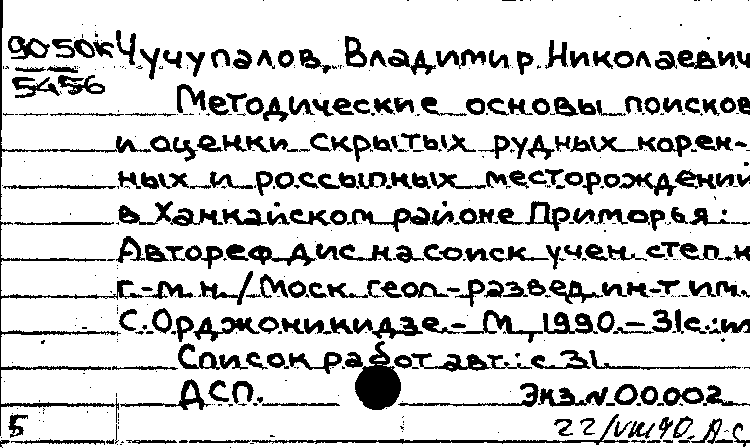 90-50к Чучупалов, Владимир Николаевич
5456
Методические основы поисков
и оценки скрытых рудных корен-
ных и россыпных месторождений
в Ханкайском районе Приморья:
Автореф дис на соиск учен. степ к
г.-м.н. / Моск геол-развед ин-т им.
С. Орджоникидзе.- М, 1990.- 31с.: ил
Список работ авт.: с. 31.
ДСП. Экз. N 00002
5 22/VIII 90.